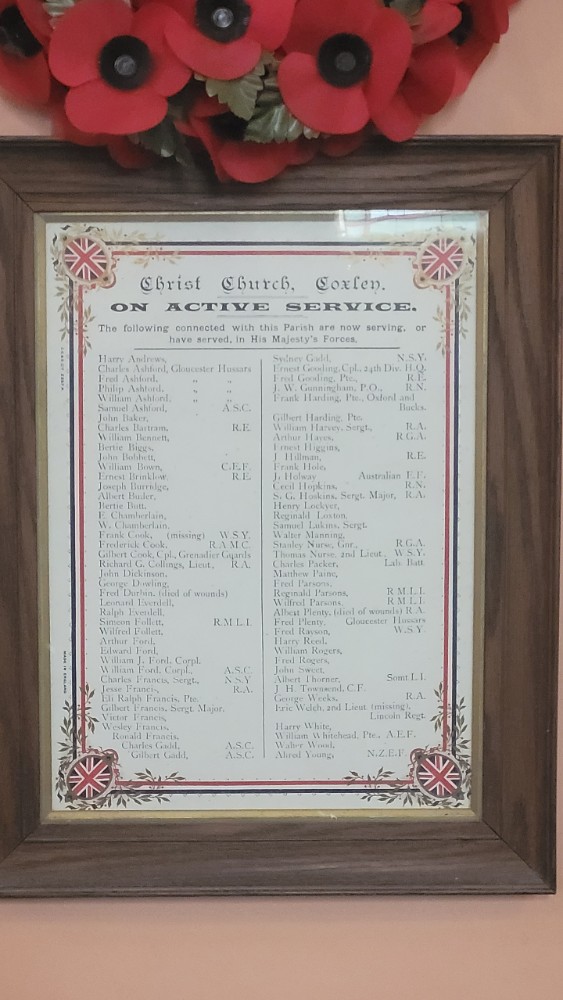 Christ Church, Coxley.
ON ACTIVE SERVICE.
The following connected with this Parish are now serving, or
have served, in His Majesty's Forces.
Harry Andrews,
Charles Ashford, Gloucester Hussars
Fred Ashford, " "
Philip Ashford, " "
William Ashford, " "
Samuel Ashford, A.S.C.
John Baker,
Charles Bartram, R.E
William Bennett,
Bertie Biggs,
John Bobbett,
William Bown, C.E.F.
Ernest Brinklow, R.E.
Joseph Burridge,
Albert Butler,
Bertie Butt,
E. Chamberlain,
W. Chamberlain,
Frank Cook, (missing) W.S.Y.
Frederick Cook, R.A.M.C.
Gilbert Cook, Cpl., Grenadier Guards
Richard G. Collings, Lieut., R.A.
John Dickinson,
George Dowling,
Fred Durbin, (died of wounds)
Leonard Everdell,
Ralph Everdell,
Simeon Follett, R.M.L.I.
Wilfred Follett,
Arthur Ford,
Edward Ford,
William J. Ford, Corpl.
William Ford, Corpl., A.S.C.
Charles Francis, Sergt., N.S.Y
Jesse Francis, R.A.
Eli Ralph Francis, Pte.
Gilbert Francis, Sergt. Major.
Victor Francis,
Wesley Francis,
Ronald Francis,
Charles Gadd, A.S.C.
Gilbert Gadd, A.S.C.
Sydney Gadd, N.S.Y.
Ernest Gooding, Cpl., 24th Div. H.Q.
Fred Gooding, Pte., R.E.
J. W. Gunningham, P.O., R.N.
Frank Harding, Pte., Oxford and
Bucks.
Gilbert Harding, Pte.
William Harvey, Sergt., R.A.
Arthur Hayes, R.G.A.
Ernest Higgins,
J. Hillman, R.E.
Frank Hole,
J. Holway Australian E.F.
Cecil Hopkins, R.N.
S. G. Hoskins, Sergt. Major, R.A.
Henry Lockyer,
Reginald Loxton,
Samuel Lukins, Sergt.
Walter Manning,
Stanley Nurse, Gnr., R.G.A.
Thomas Nurse, 2nd Lieut., W.S.Y.
Charles Packer, Lab. Batt.
Matthew Paine,
Fred Parsons,
Reginald Parsons, R.M.L.I.
Wilfred Parsons, R.M.L.I.
Albert Plenty, (died of wounds) R.A.
Fred Plenty, Gloucester Hussars
Fred Rayson, W.S.Y.
Harry Reed,
William Rogers,
Fred Rogers,
John Sweet,
Albert Thorner, Somt.L.I.
J. H. Townsend, C.F.
George Weeks, R.A.
Eric Welch, 2nd Lieut (missing),
Lincoln Regt.
Harry White,
William Whitehead, Pte., A.E.F.
Walter Wood,
Alfred Young, N.Z.E.F.